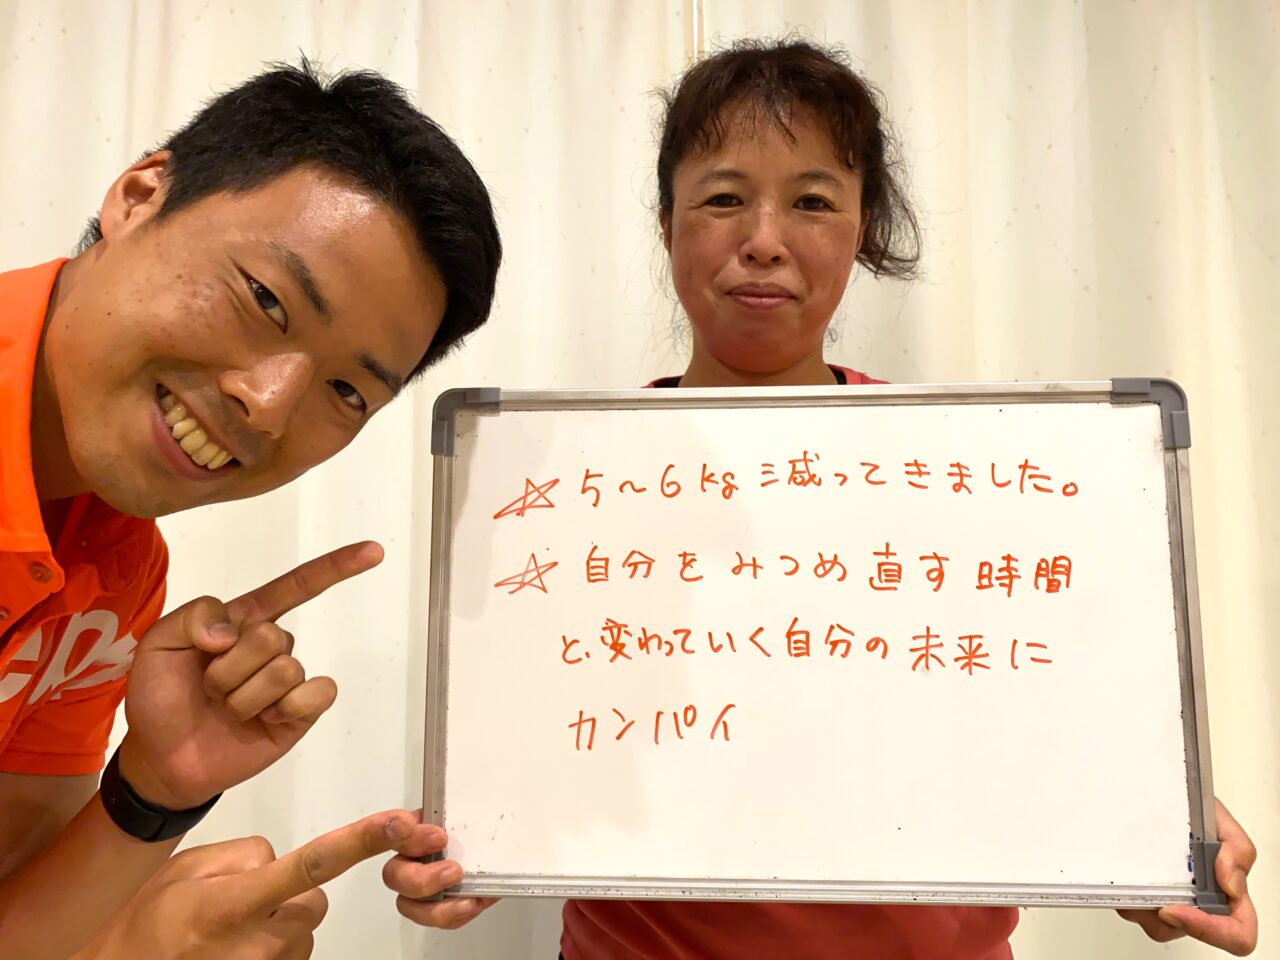 ☆ 5〜6kg減ってきました。
☆ 自分をみつめ直す時間
と、変わっていく自分の未来に
カンパイ